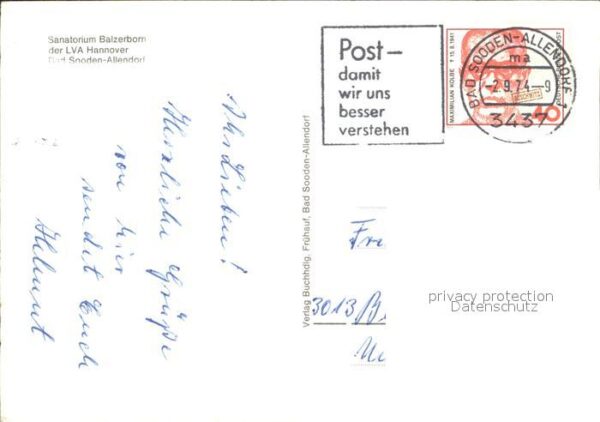 Sanatorium Balzerborn
der LVA Hannover
Bad Sooden-Allendorf
Ihr Lieben!
Herzliche Grüße
von hier
sendet Euch
Helmut
Verlag Buchhdlg. Frühauf, Bad Sooden-Allendorf
Post-
damit
wir uns
besser
verstehen
BAD SOODEN-ALLENDORF 1
ma
-2.9.74-9
3437
MAXIMILIAN KOLBE † 15.8.1941
40
3013 B
privacy protection
Datenschutz